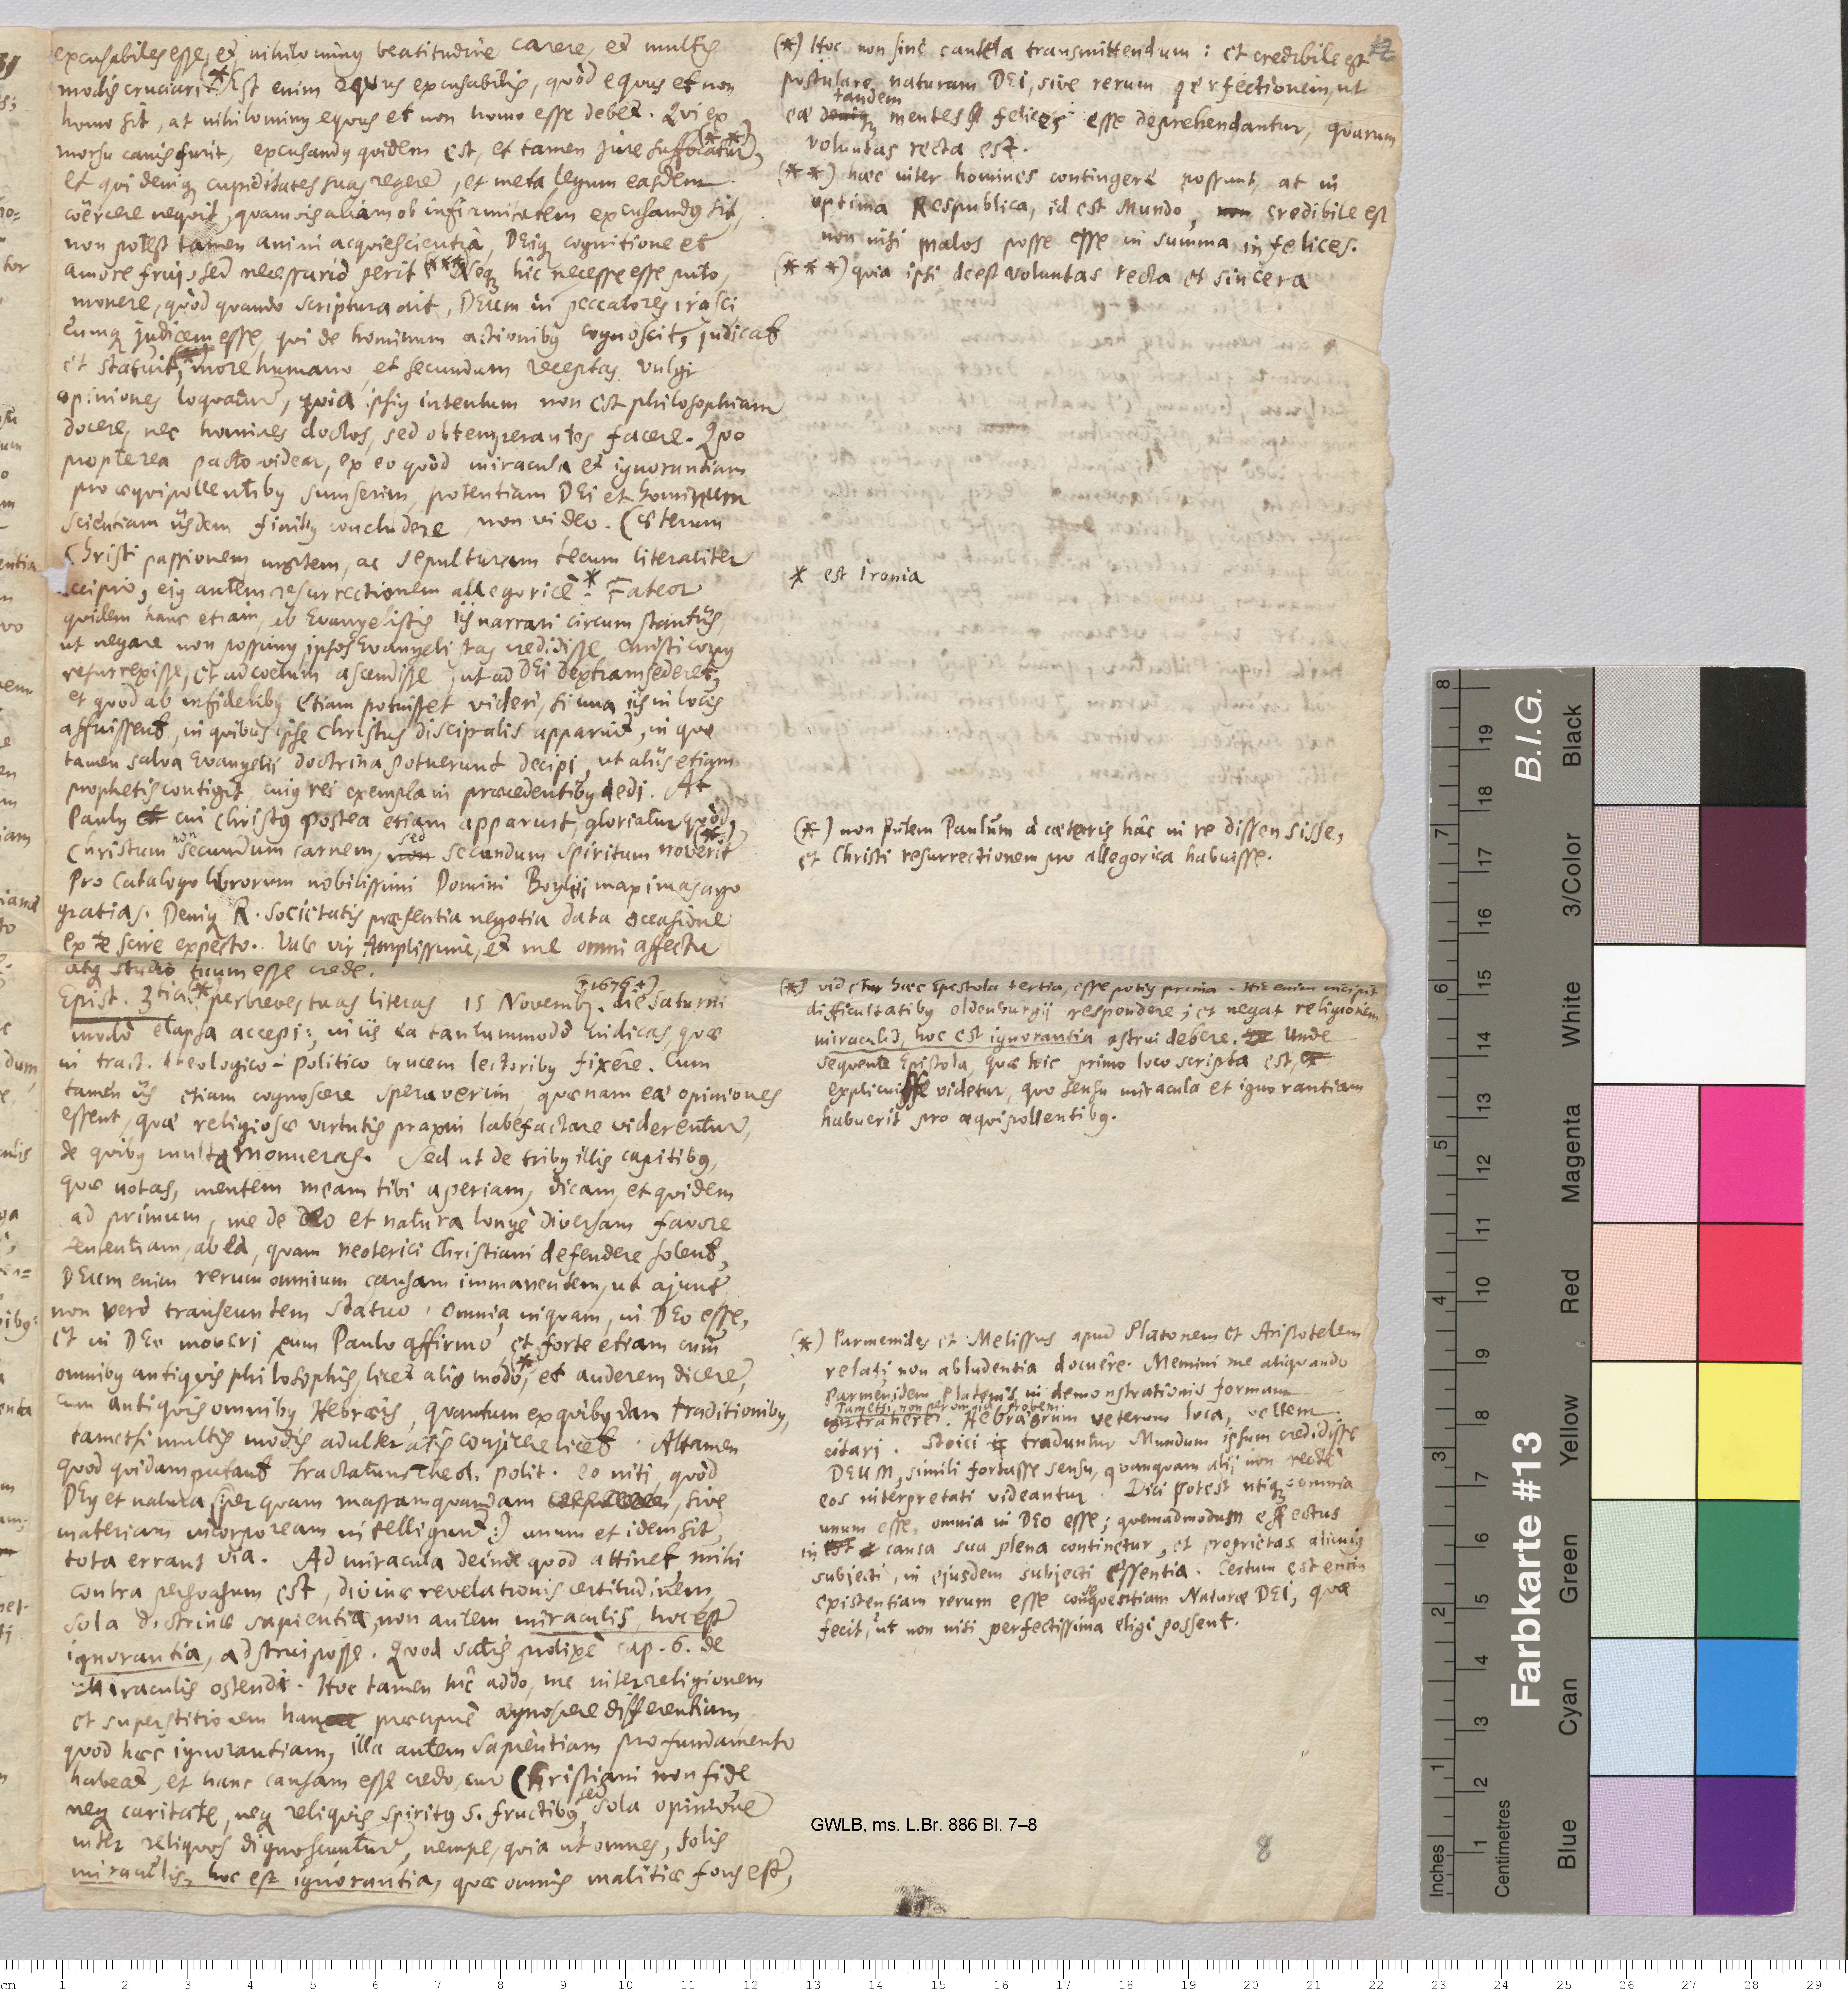 excusabiles esse, et nihilominus beatitudine carere, et multis
modis cruciari.(*) Est enim equus excusabilis, quòd equus et non
homo sit, at nihilominus equus et non homo esse debet. Qvi ex
morsu canis furit, excusandus quidem est, et tamen jure suffocatur(**),
et qui deniq; cupiditates suas regere, et metu legum easdem
coërcere nequit, quamvis etiam ob infirmitatem excusandus sit,
non potest tamen animi acquiescentiâ, DEiq; cognitione et
amore frui, sed necessariò perit (***) Neq; hîc necesse esse puto,
monere, quòd quando scriptura ait, DEum in peccatores irasci
eumq; judicem esse, qui de hominum actionibus cognoscit, judicat
et statuit, more humano, et secundum receptas vulgi
opiniones loquatur, quia ipsius intentum non est philosophiam
docere, nec homines doctos, sed obtemperantes facere. Quo
propterea pacto videar, ex eo quòd miracula et ignorantiam
pro æquipollentibus sumserim, potentiam DEi et hominum
scientiam iisdem finibus concludere, non video. Cæterum
Christi passionem mortem, ac sepulturam tecum literaliter
accipio, ejus autem resurrectionem allegoricè.* Fateor
quidem hanc etiam, ab Evangelistis iis narrari circumstantiis,
ut negare non possimus ipsos Evangelistas credidisse Christi corpus
resurrexisse, et ad coelum ascendisse, ut ad DEi dextram sederet,
et quod ab infidelibus etiam potuisset videri, si una iis in locis
affuissent, in quibus ipse Christus discipulis apparuit, in quo
tamen salva Evangelii doctrina potuerunt decipi, ut aliis etiam
prophetis contigit, cujus rei exempla in præcedentibus dedi. At
Paulus et cui Christus postea etiam apparuit, gloriatur quòd,
Christum non secundum carnem, non sed secundum spiritum noverit (*)
Pro Catalogo librorum nobilissimi Domini Boylii maximas ago
gratias. Deniq; R. Societatis præsentia negotia data occasione
ex te scire expecto. Vale vir Amplissime, et me omni affectu
atq; studio tuum esse crede.
Epist. 3tia.(*) perbreves tuas literas 15 Novemb. (1675 +) die Saturni
modò elapsa accepi; in iis ea tantummodò indicas, quæ
in tract. theologico-politico crucem lectoribus fixere. Cum
tamen iis etiam cognoscere speraverim, quænam eæ opiniones
essent, quæ religiosæ virtutis praxin labefactare viderentur,
de quibus multa monueras. Sed ut de tribus illis capitibus,
quæ notas, mentem meam tibi aperiam, dicam, et quidem
ad primum, me de DEo et natura longè diversam favore
sententiam, ab eâ, quam neoterici Christiani defendere solent,
DEum enim rerum omnium causam immanentem, ut ajunt
non verò transeuntem statuo. Omnia, inquam, in DEo esse,
et in DEo moveri cum Paulo affirmo, et forte etiam cum
omnibus antiquis philosophis, licet alio modo,(*) et auderem dicere,
cum antiquis omnibus Hebræis, quantum ex quibusdam traditionibus,
tametsi multis modis adulteratis conjicere licet. Attamen
quod quidam putant Tractatum Theol. polit. eo niti, quòd
DEus et natura (:per quam massam quandam, sive
materiam incorpoream intelligunt:) unum et idem sit,
tota errant via. Ad miracula deinde quod attinet mihi
contra persuasum est, divinæ revelationis certitudinem,
sola doctrinæ sapientia, non autem miraculis, hoc est
ignorantia, adstrui posse. Quod satis prolixè cap. 6. de
Miraculis ostendi. Hoc tamen hîc addo, me inter religionem
et superstitionem hanc præcipuè agnoscere differentiam
quod hæc ignorantiam, illa autem sapientiam pro fundamento
habeat, et hanc causam esse credo, cur Christiani non fide
neq; caritate, neq; reliquis spiritus S. fructibus, sed sola opinione
inter reliquos dignoscuntur, nempe, quia ut omnes, solis
miraculis, hoc est ignorantia, quæ omnis malitiæ fons est,
(*) Hoc non sine cautela transmittendum: et credibile est
postulare naturam DEi, sive rerum perfectionem, ut
eæ deniq; tandem mentes felices esse deprehendantur, quarum
voluntas recta est.
(**) hæc inter homines contingere possunt, at in
optima Respublica, id est Mundo, non credibile est
non nisi malos posse esse in summa infelices.
(***) quia ipsi deest voluntas recta et sincera
* est Ironia
(*) non putem Paulum à cæteris hâc in re dissensisse,
et Christi resurrectionem pro allegorica habuisse.
(*) videtur hæc Epistola tertia, esse potius prima. Hic enim incipit
difficultatibus Oldenburgii respondere; et negat religionem
miraculis, hoc est ignorantia astrui debere. Unde
sequente Epistola, quæ hic primo loco scripta est,
explicuisse videtur, quo sensu miracula et ignorantiam
habuerit pro æquipollentibus.
(*) Parmenides et Melissus apud Platonem et Aristotelem
relati non abludentia docuêre. Memini me aliquando
Parmenidem Platonis in demonstrationis formam
contrahere. Tametsi non per omnia probem. Hebræorum veterum loca, vellem
citari. Stoici traduntur Mundum ipsum credidisse
DEUM, simili fortasse sensu, quanquam alij non rectè
eos interpretati videantur. Dici potest utiq; omnia
unum esse, omnia in DEo esse; quemadmodum effectus
in causa sua plena continetur, et proprietas alicujus
subjecti, in ejusdem subjecti essentia. Certum est enim
existentiam rerum esse consequentiam Naturæ DEi, quæ
fecit, ut non nisi perfectissima eligi possent.
GWLB, ms. L.Br. 886 Bl. 7–8
8
B.I.G.
Farbkarte #13
Inches
Centimetres
Black
3/Color
White
Magenta
Red
Yellow
Green
Cyan
Blue